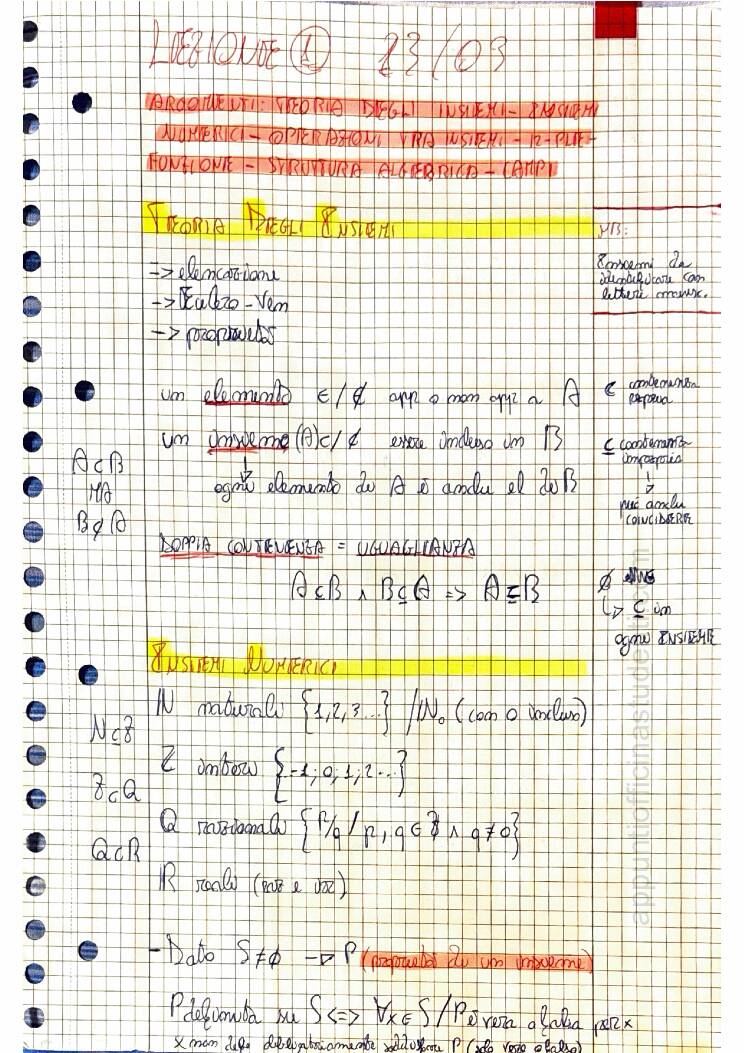 LEZIONE ① 23/09
ARGOMENTI: TEORIA DEGLI INSIEMI - INSIEMI
NUMERICI - OPERAZIONI TRA INSIEMI - n-PLE -
FUNZIONE - STRUTTURA ALGEBRICA - CAMPI
TEORIA DEGLI INSIEMI
NB:
Insiemi da
identificare con
lettere maiusc.
-> elencazione
-> Eulero-Ven
-> proprietà
un elemento ∈/∉ app o non app a A
⊂ contenenza
propria
un insieme (A) ⊂/⊄ essere incluso in B
⊆ contenenza
impropria
↓
può anche
COINCIDERE
↓
ogni elemento di A è anche el di B
A⊂B
MA
B⊄A
DOPPIA CONTENENZA = UGUAGLIANZA
A⊆B ∧ B⊆A => A=B
∅
↳ ⊆ in
ogni INSIEME
INSIEMI NUMERICI
ℕ naturali {1,2,3...} / ℕ₀ (con 0 incluso)
N⊆Z
Z interi {-1; 0; 1; 2...}
Z⊂Q
Q razionali {p/q / p, q ∈ Z ∧ q≠0}
Q⊂R
ℝ reali (raz e irr)
- Dato S≠∅ -> P (proprietà di un insieme)
P definita su S <=> ∀x∈S / P è vera o falsa per x
x non deve obbligatoriamente soddisfare P (solo vero o falso)
appuntiofficinastudenti.com